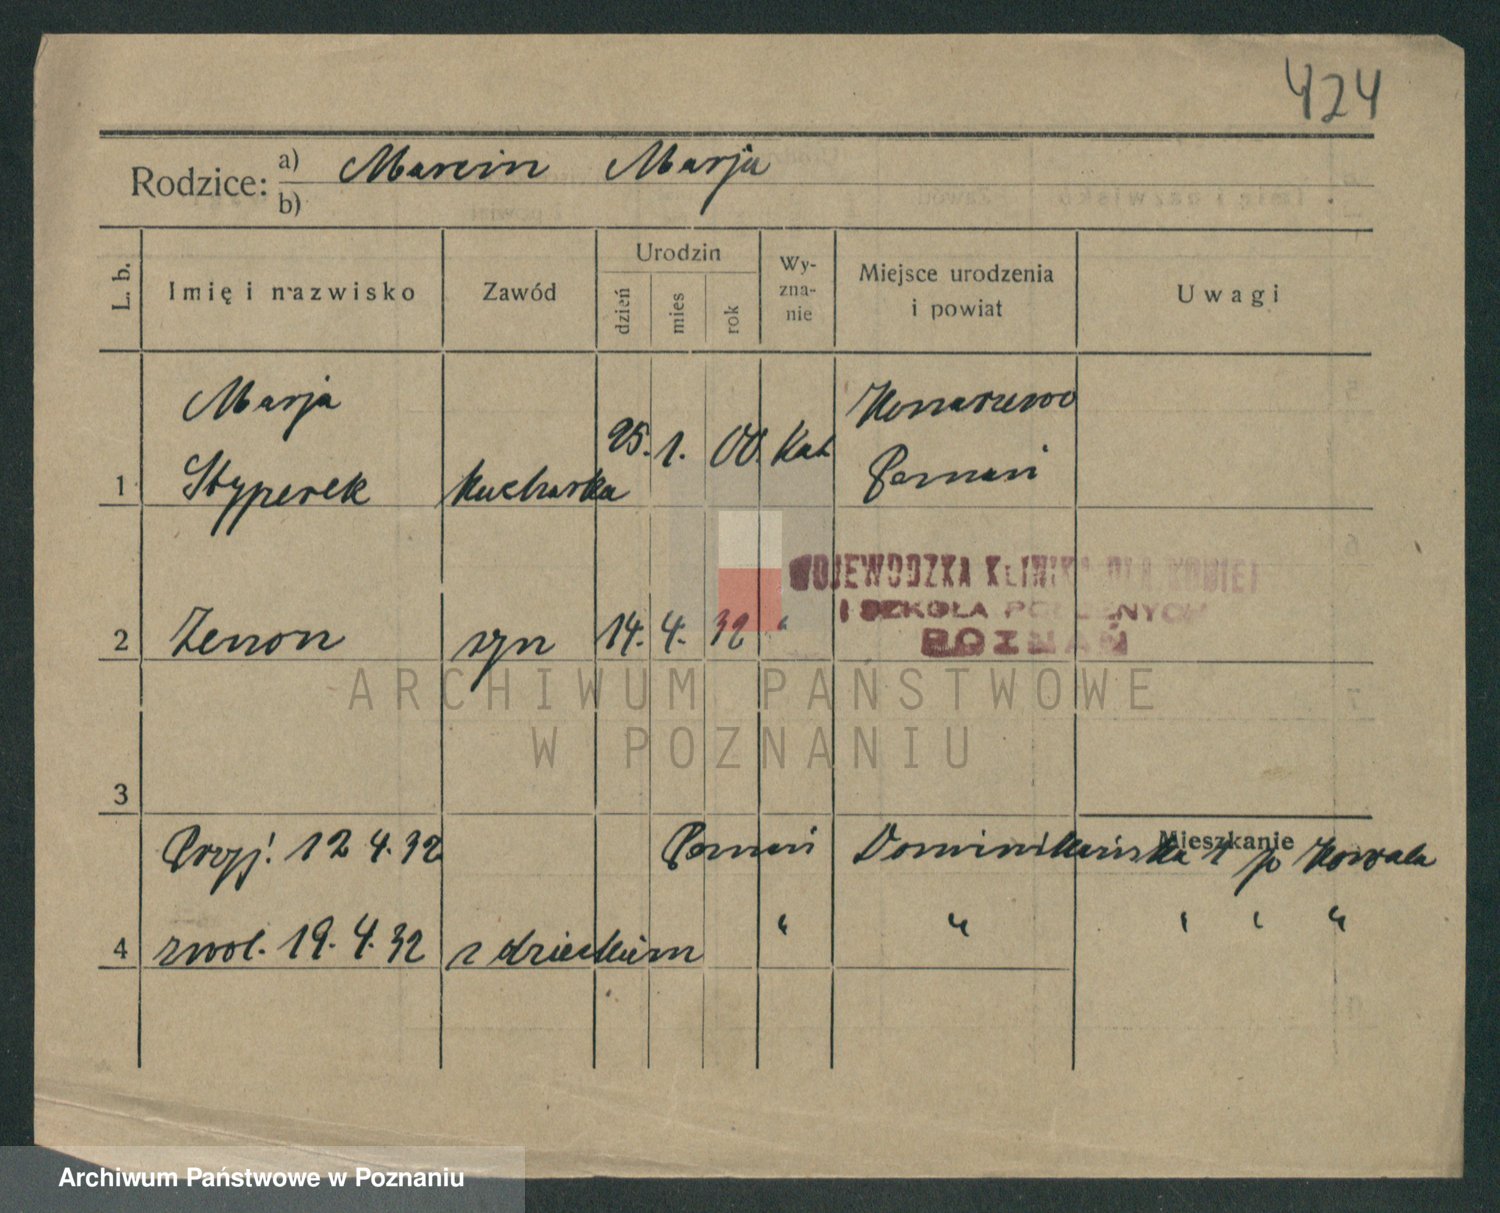 424
Rodzice: a) Marcin Marja
b)
L. b. Imię i nazwisko Zawód Urodzin dzień mies rok Wy-zna-nie Miejsce urodzenia i powiat Uwagi
Marja Konarzewo
25. 1. 00. Kat
1 Styperek kucharka Poznań
WOJEWÓDZKA KLINIKA DLA KOBIET
I SZKOŁA POŁOŻNYCH
POZNAŃ
2 Zenon syn 14. 4. 32 "
ARCHIWUM PAŃSTWOWE
W POZNANIU
3
Mieszkanie
Przyj. 12 4. 32 Poznań Dominikańska p Kowala
4 zwol. 19. 4. 32 z dzieckiem " " " " "
Archiwum Państwowe w Poznaniu